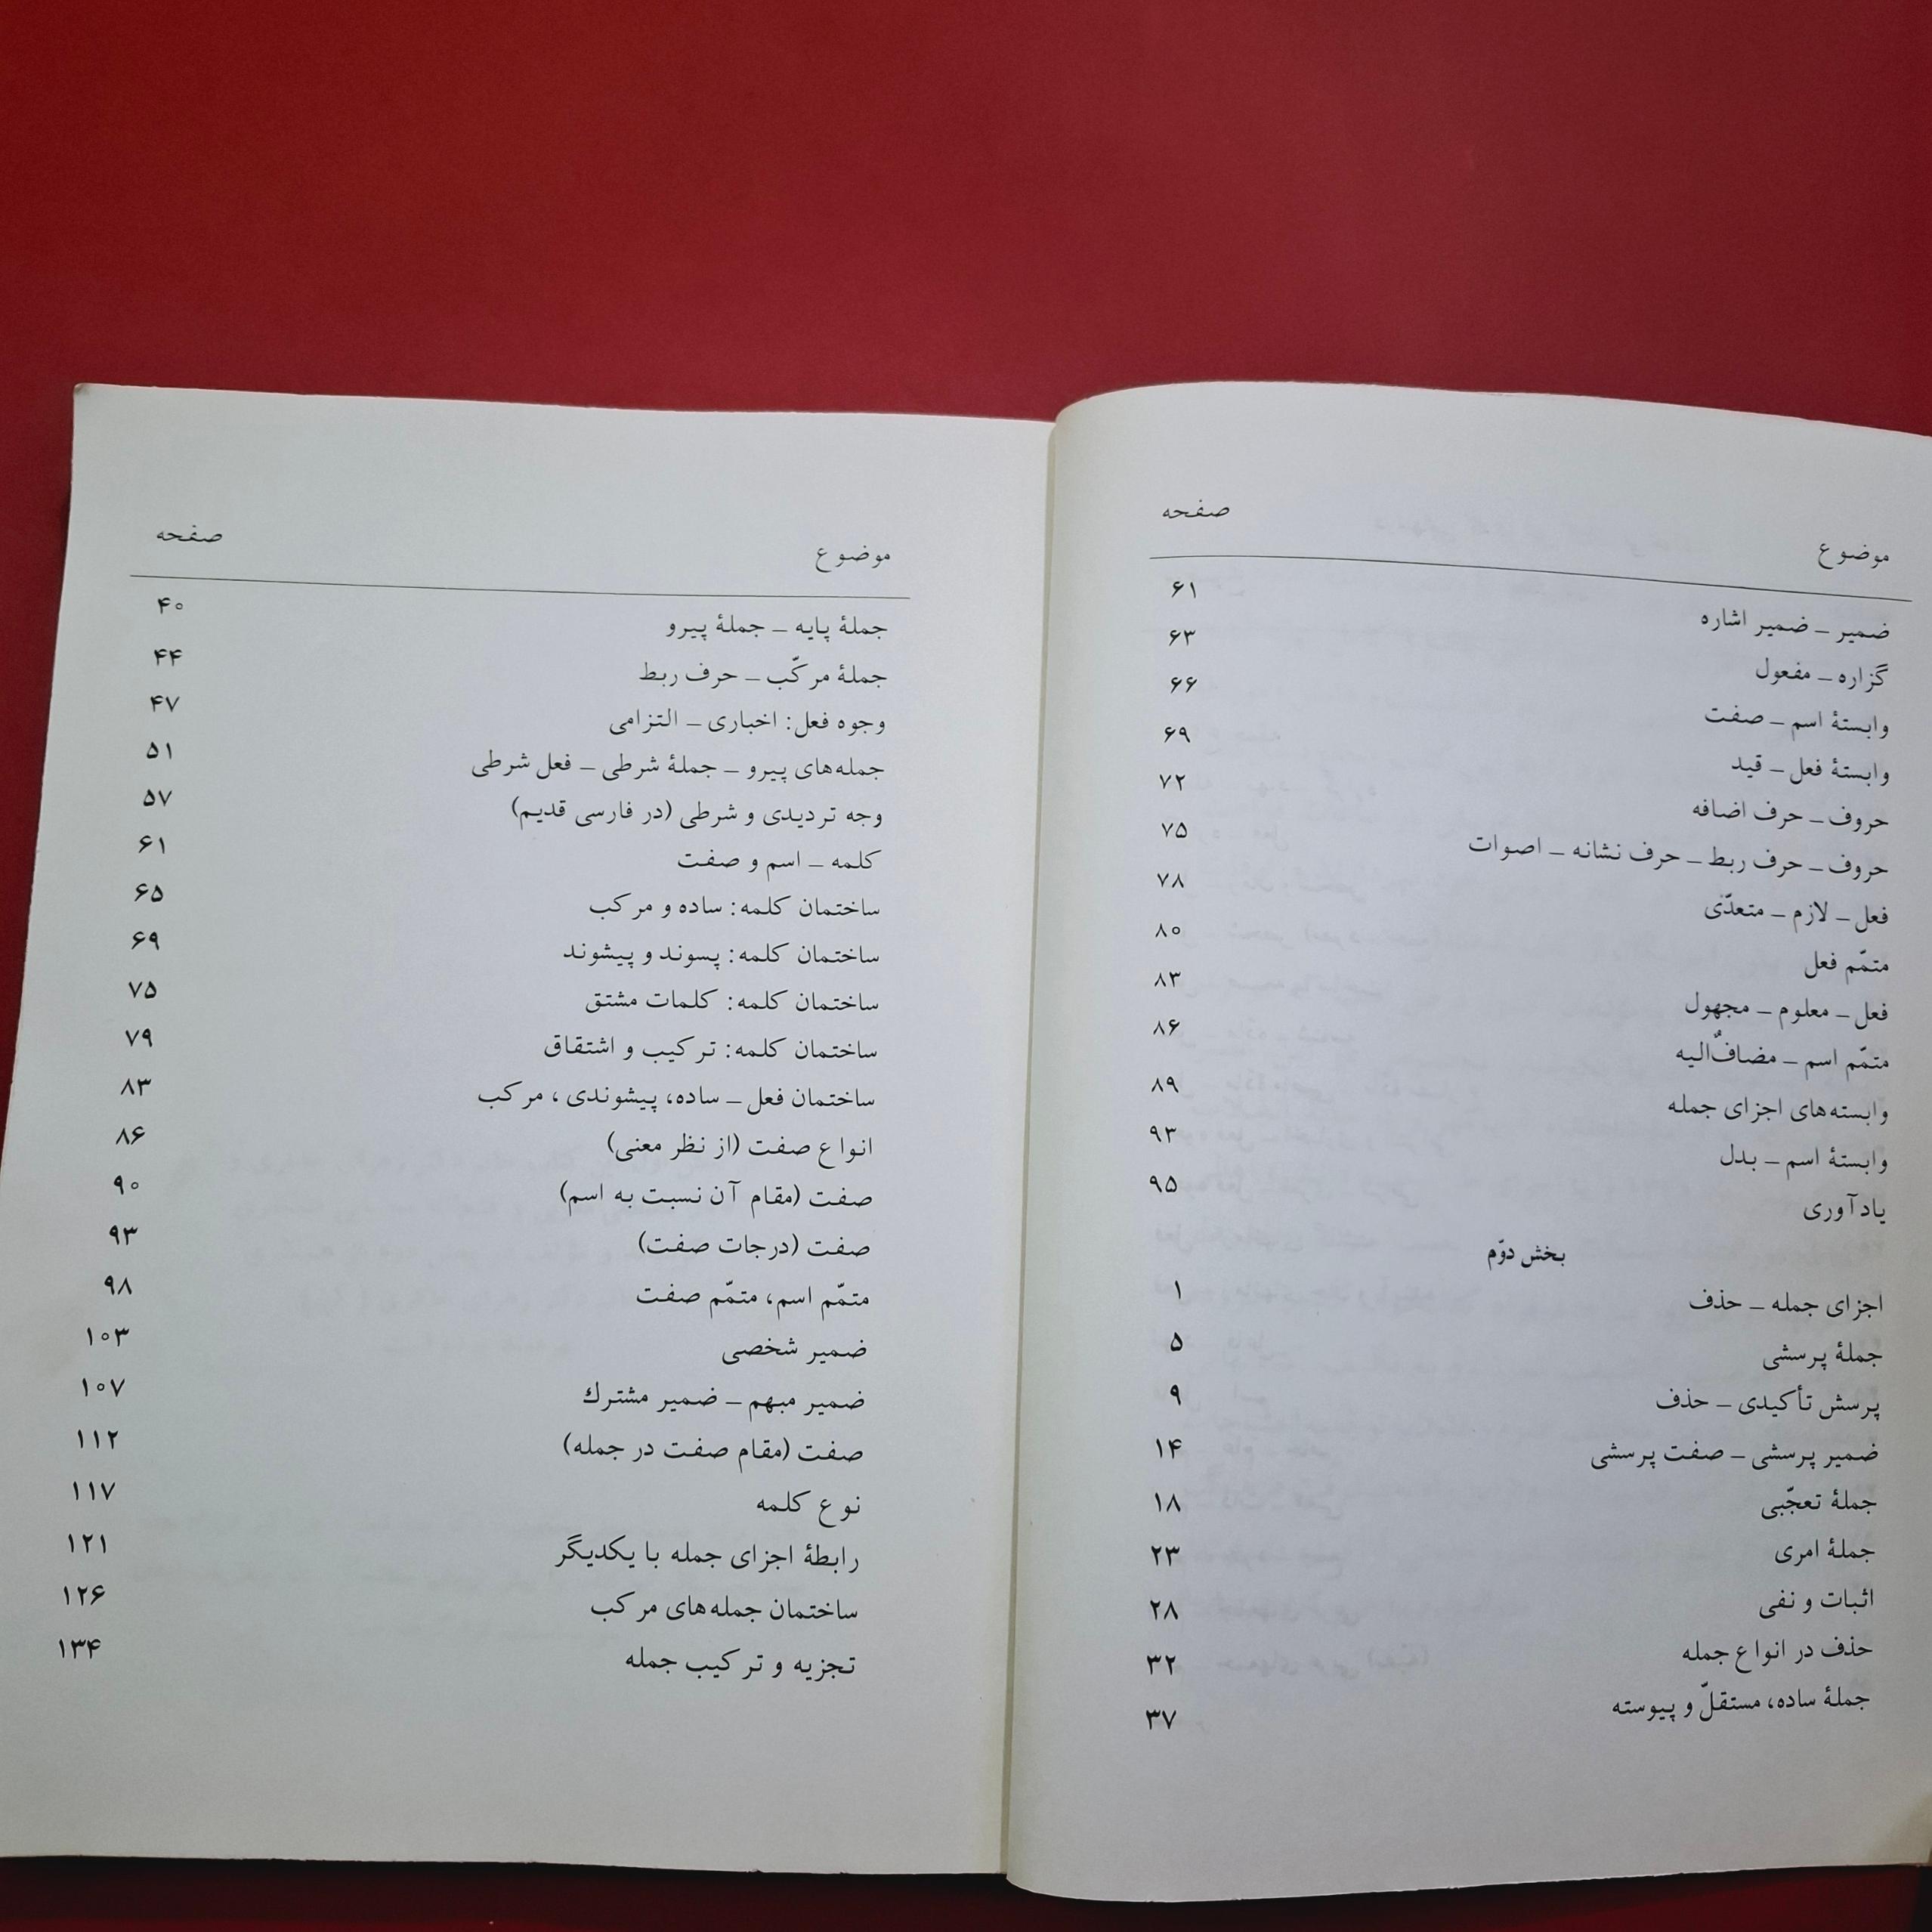 موضوع صفحه
ضمیر – ضمیر اشاره ۶۱
گزاره – مفعول ۶۳
وابستهٔ اسم – صفت ۶۶
وابستهٔ فعل – قید ۶۹
حروف – حرف اضافه ۷۲
حروف – حرف ربط – حرف نشانه – اصوات ۷۵
فعل – لازم – متعدّی ۷۸
متمّم فعل ۸۰
فعل – معلوم – مجهول ۸۳
متمّم اسم – مضافٌ‌الیه ۸۶
وابسته‌های اجزای جمله ۸۹
وابستهٔ اسم – بدل ۹۳
یادآوری ۹۵
بخش دوّم
اجزای جمله – حذف ۱
جملهٔ پرسشی ۵
پرسش تأکیدی – حذف ۹
ضمیر پرسشی – صفت پرسشی ۱۴
جملهٔ تعجّبی ۱۸
جملهٔ امری ۲۳
اثبات و نفی ۲۸
حذف در انواع جمله ۳۲
جملهٔ ساده، مستقلّ و پیوسته ۳۷
موضوع صفحه
جملهٔ پایه – جملهٔ پیرو ۴۰
جملهٔ مرکّب – حرف ربط ۴۴
وجوه فعل: اخباری – التزامی ۴۷
جمله‌های پیرو – جملهٔ شرطی – فعل شرطی ۵۱
وجه تردیدی و شرطی (در فارسی قدیم) ۵۷
کلمه – اسم و صفت ۶۱
ساختمان کلمه: ساده و مرکب ۶۵
ساختمان کلمه: پسوند و پیشوند ۶۹
ساختمان کلمه: کلمات مشتق ۷۵
ساختمان کلمه: ترکیب و اشتقاق ۷۹
ساختمان فعل – ساده، پیشوندی، مرکب ۸۳
انواع صفت (از نظر معنی) ۸۶
صفت (مقام آن نسبت به اسم) ۹۰
صفت (درجات صفت) ۹۳
متمّم اسم، متمّم صفت ۹۸
ضمیر شخصی ۱۰۳
ضمیر مبهم – ضمیر مشترك ۱۰۷
صفت (مقام صفت در جمله) ۱۱۲
نوع کلمه ۱۱۷
رابطهٔ اجزای جمله با یکدیگر ۱۲۱
ساختمان جمله‌های مرکب ۱۲۶
تجزیه و ترکیب جمله ۱۳۴